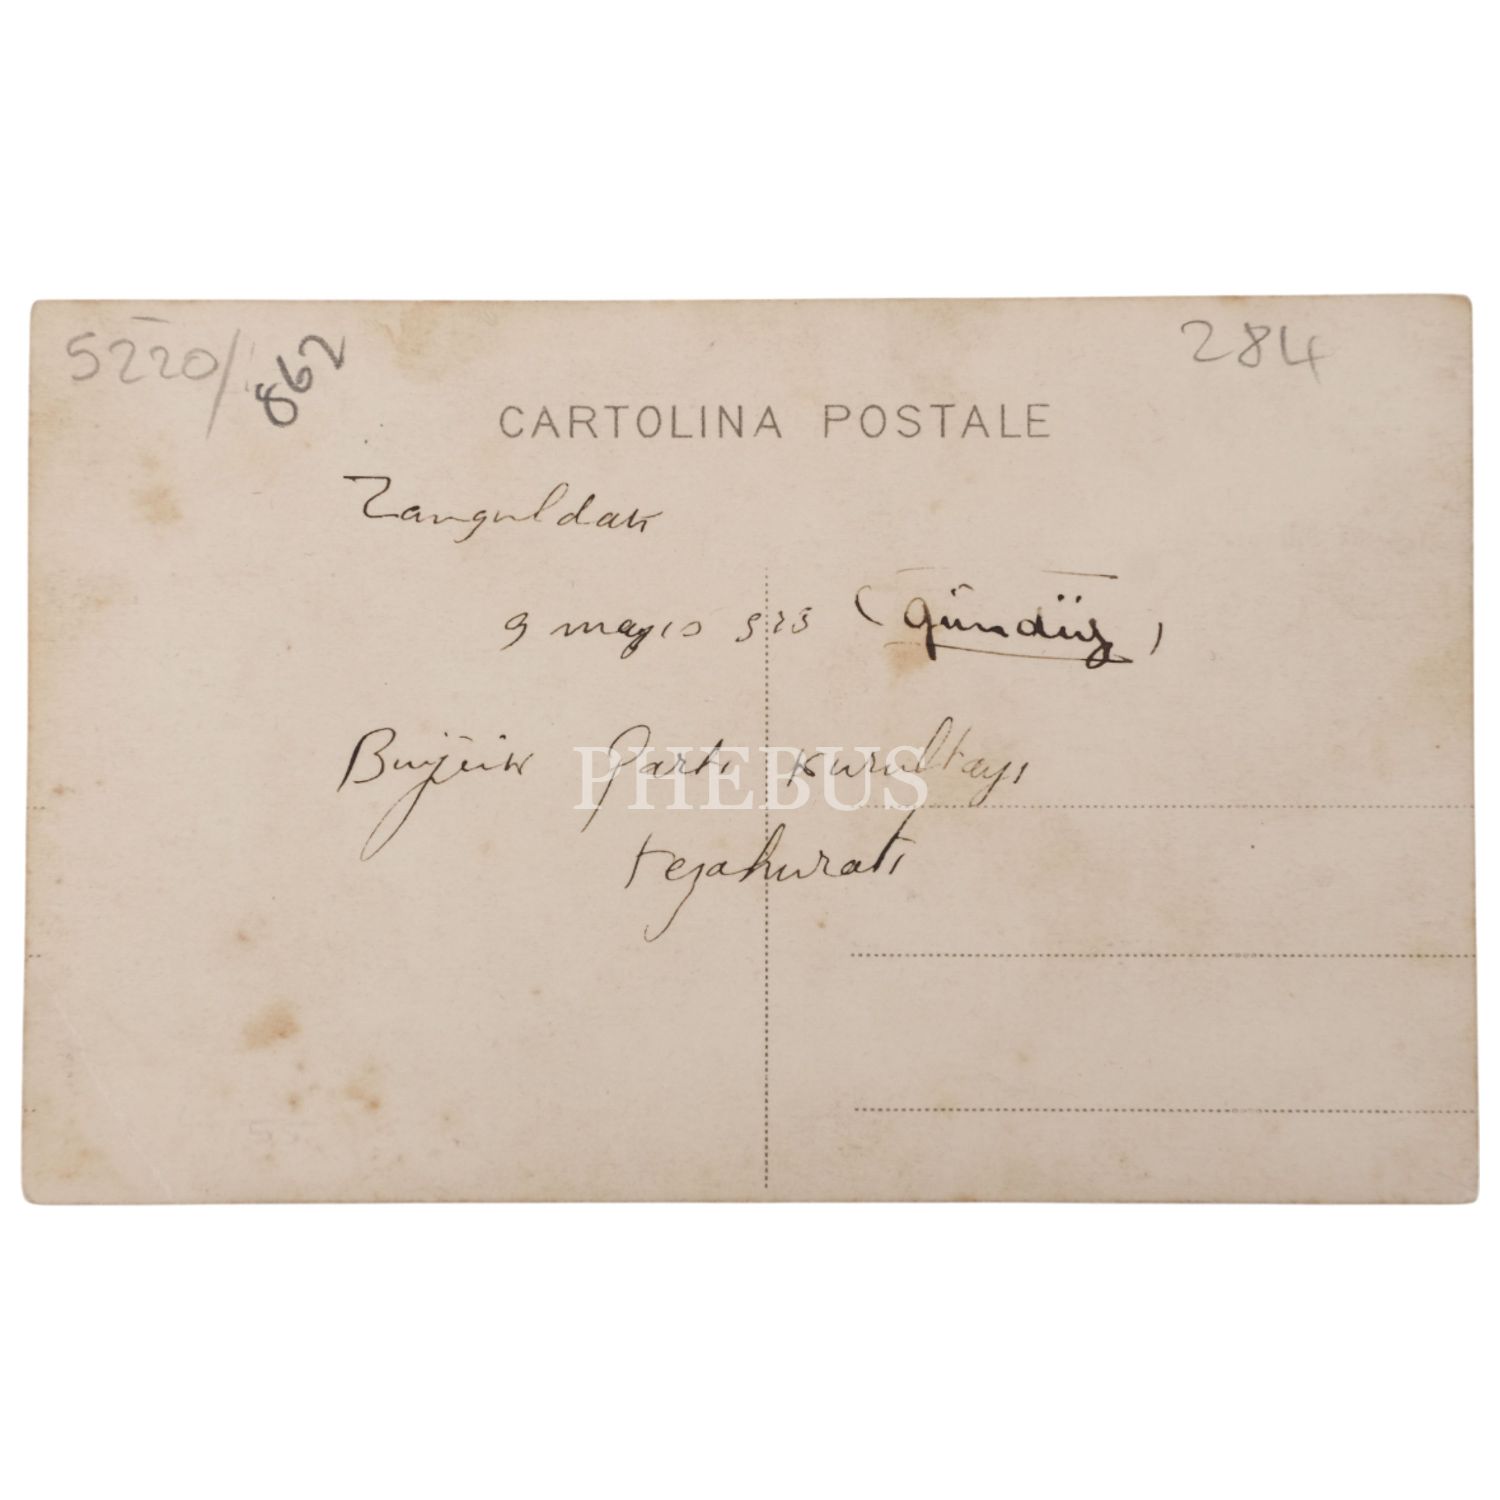 5220/ 862
284
CARTOLINA POSTALE
Zonguldak
9 mayıs (gündüz)
Büyük Parti Kurultayı
tezahuratı
PHEBUS